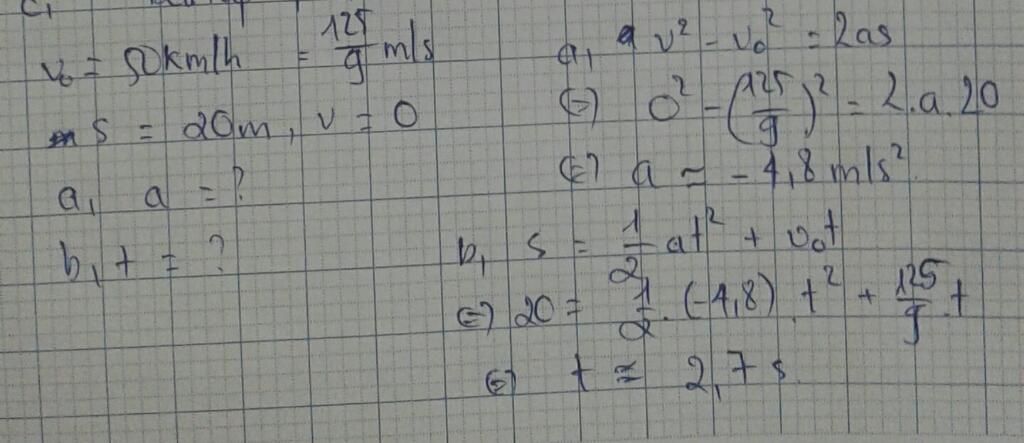 v₀ = 50km/h = 125/9 m/s
s = 20m, v = 0
a, a = ?
b, t = ?
a, v² - v₀² = 2as
(=) 0² - (125/9)² = 2.a.20
(=) a ≈ -4,8 m/s²
b, s = 1/2 at² + v₀t
(=) 20 = 1/2.(-4,8).t² + 125/9 t
(=) t ≈ 2,7 s